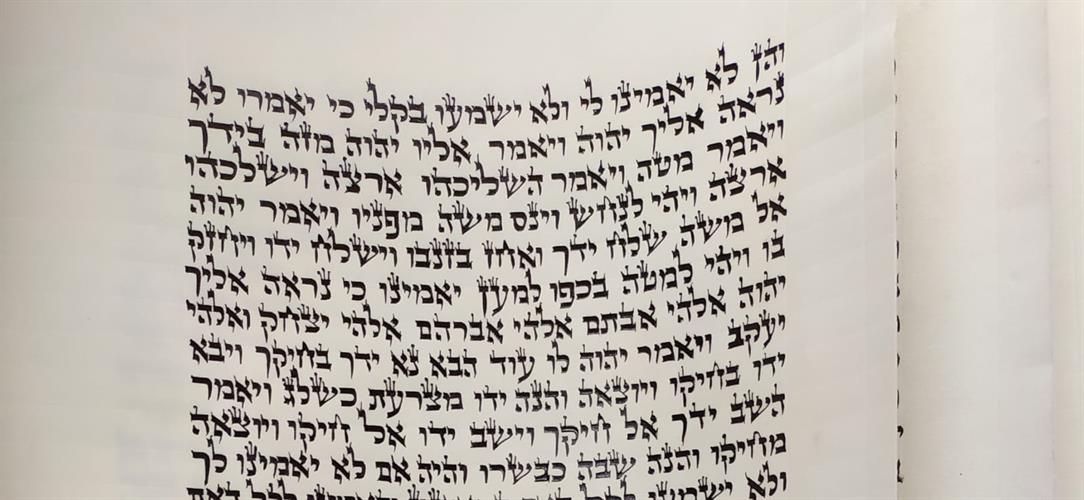 והן לא יאמינו לי ולא ישמעו בקלי כי יאמרו לא
נראה אליך יהוה ויאמר אליו יהוה מזה בידך
ויאמר מטה ויאמר השליכהו ארצה וישלכהו
ארצה ויהי לנחש וינס משה מפניו ויאמר יהוה
אל משה שלח ידך ואחז בזנבו וישלח ידו ויחזק
בו ויהי למטה בכפו למען יאמינו כי נראה אליך
יהוה אלהי אבתם אלהי אברהם אלהי יצחק ואלהי
יעקב ויאמר יהוה לו עוד הבא נא ידך בחיקך ויבא
ידו בחיקו ויוצאה והנה ידו מצרעת כשלג ויאמר
השב ידך אל חיקך וישב ידו אל חיקו ויוצאה
מחיקו והנה שבה כבשרו והיה אם לא יאמינו לך
ולא ישמעו